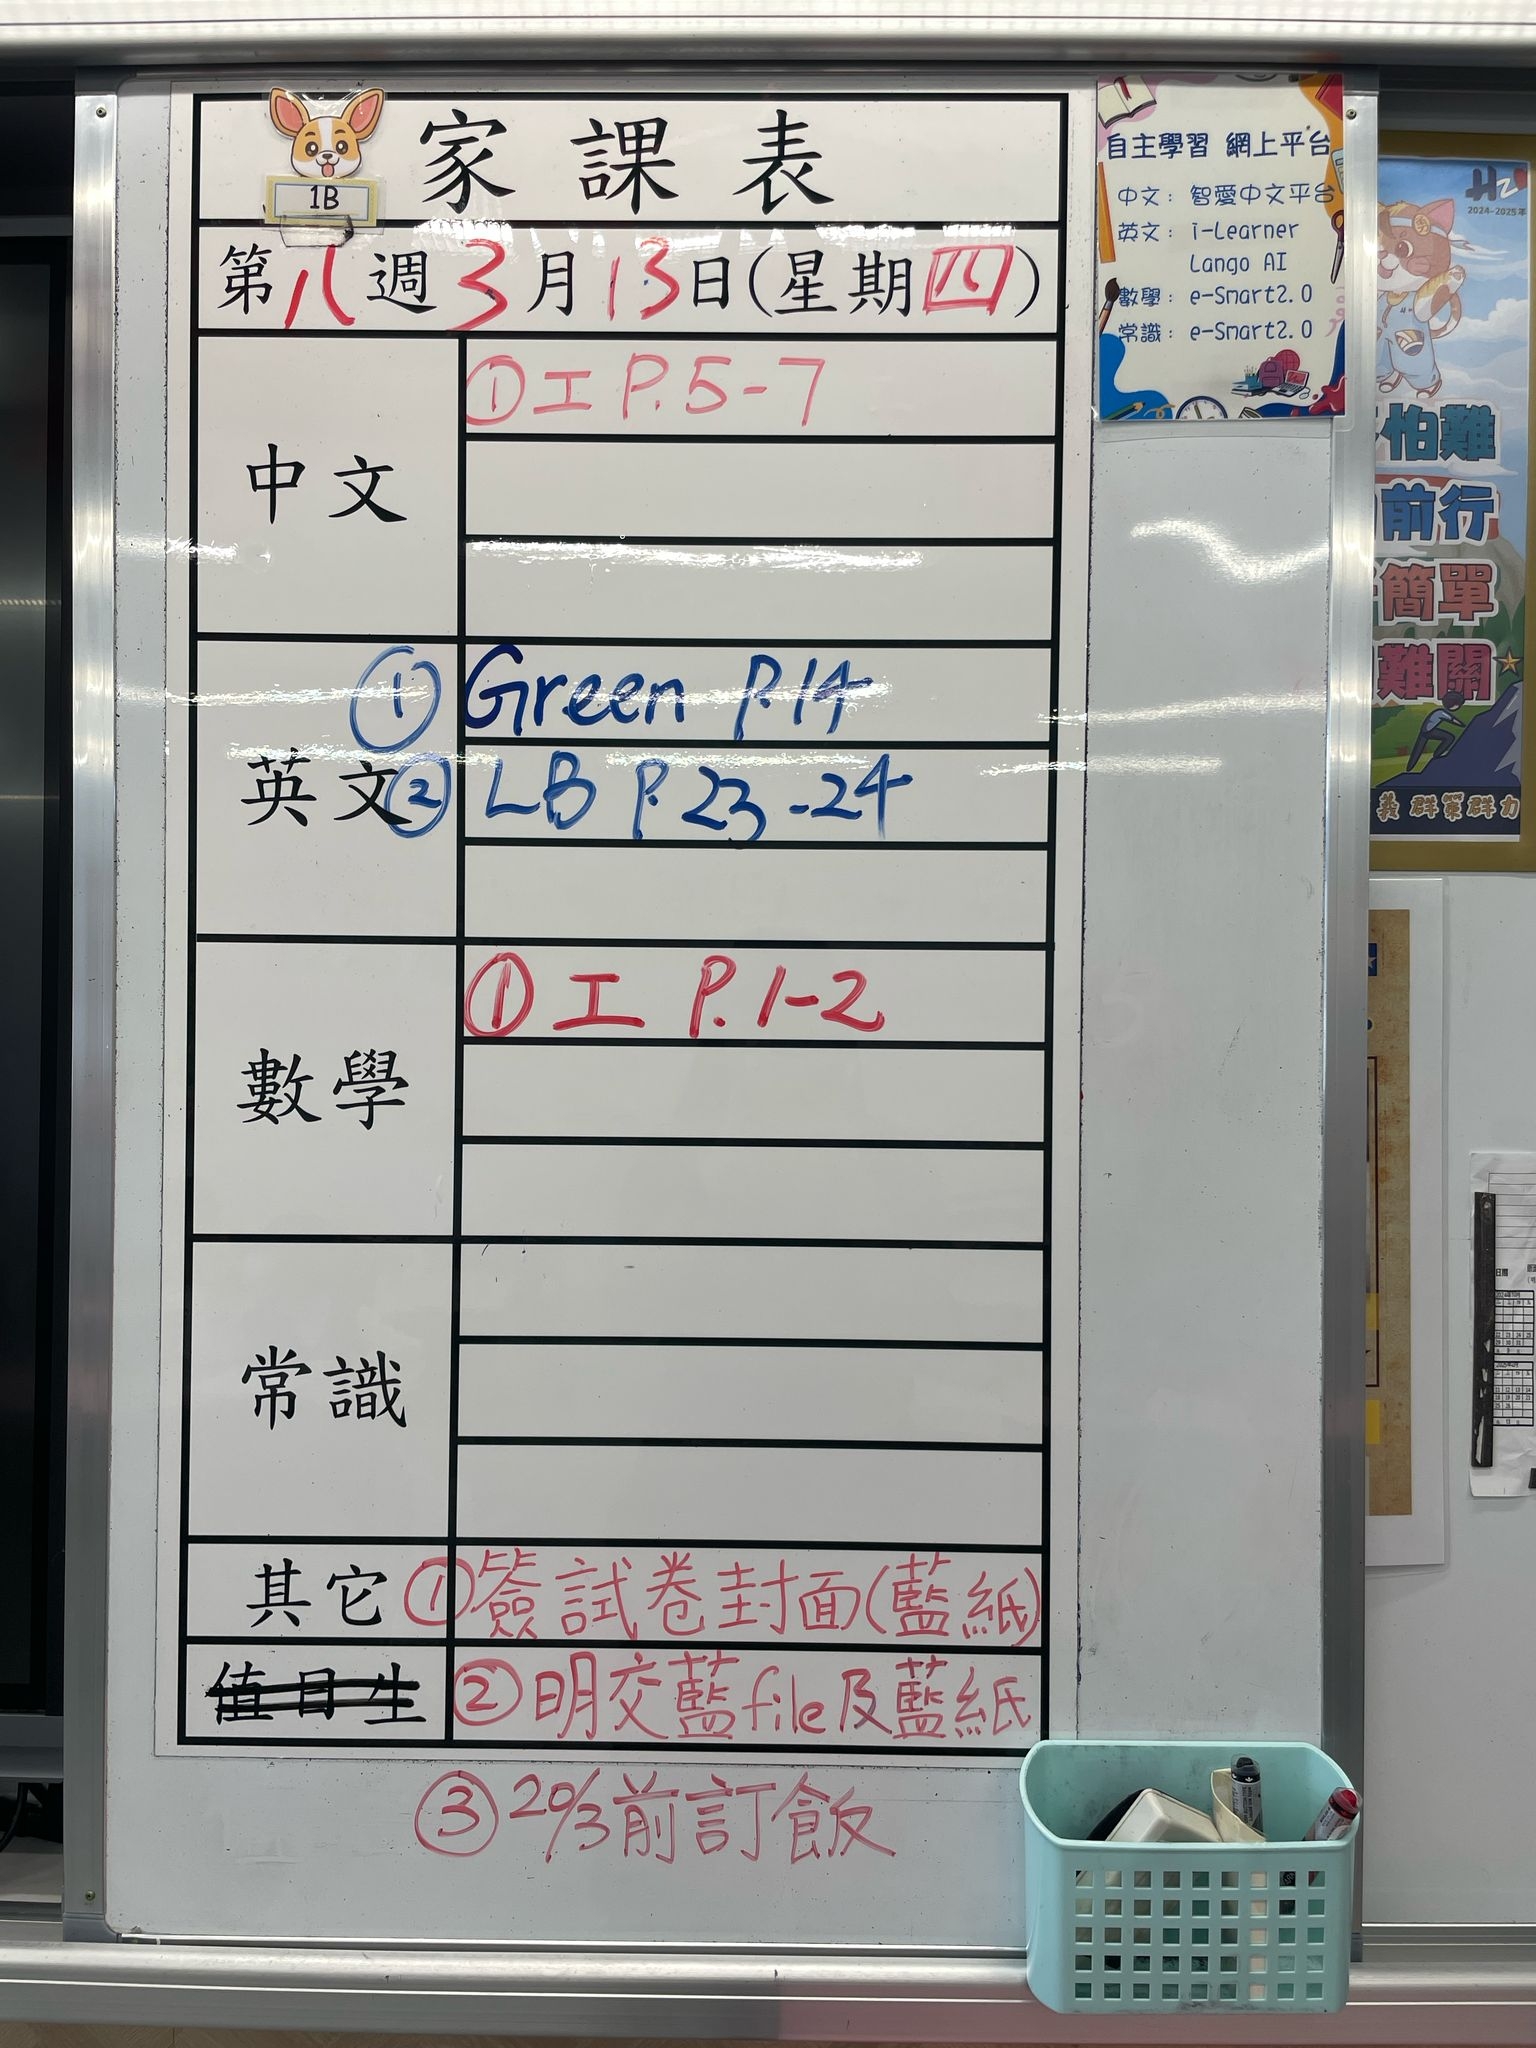 1B
家課表
第八週3月13日(星期四)
中文
①工 P.5-7
英文
①Green P.14
②LB P.23-24
數學
①工 P.1-2
常識
其它
①簽試卷封面(藍紙)
值日生
②明交藍file及藍紙
③20/3前訂飯
自主學習 網上平台
中文：智愛中文平台
英文：i-Learner
Lango AI
數學：e-Smart2.0
常識：e-Smart2.0
2024-2025年
怕難
前行
簡單
難關
義群策群力